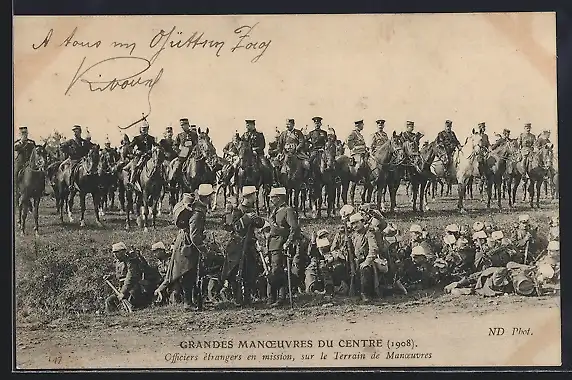 A tous mon
GRANDES MANŒUVRES DU CENTRE (1908).
ND Phot.
Officiers étrangers en mission, sur le Terrain de Manœuvres